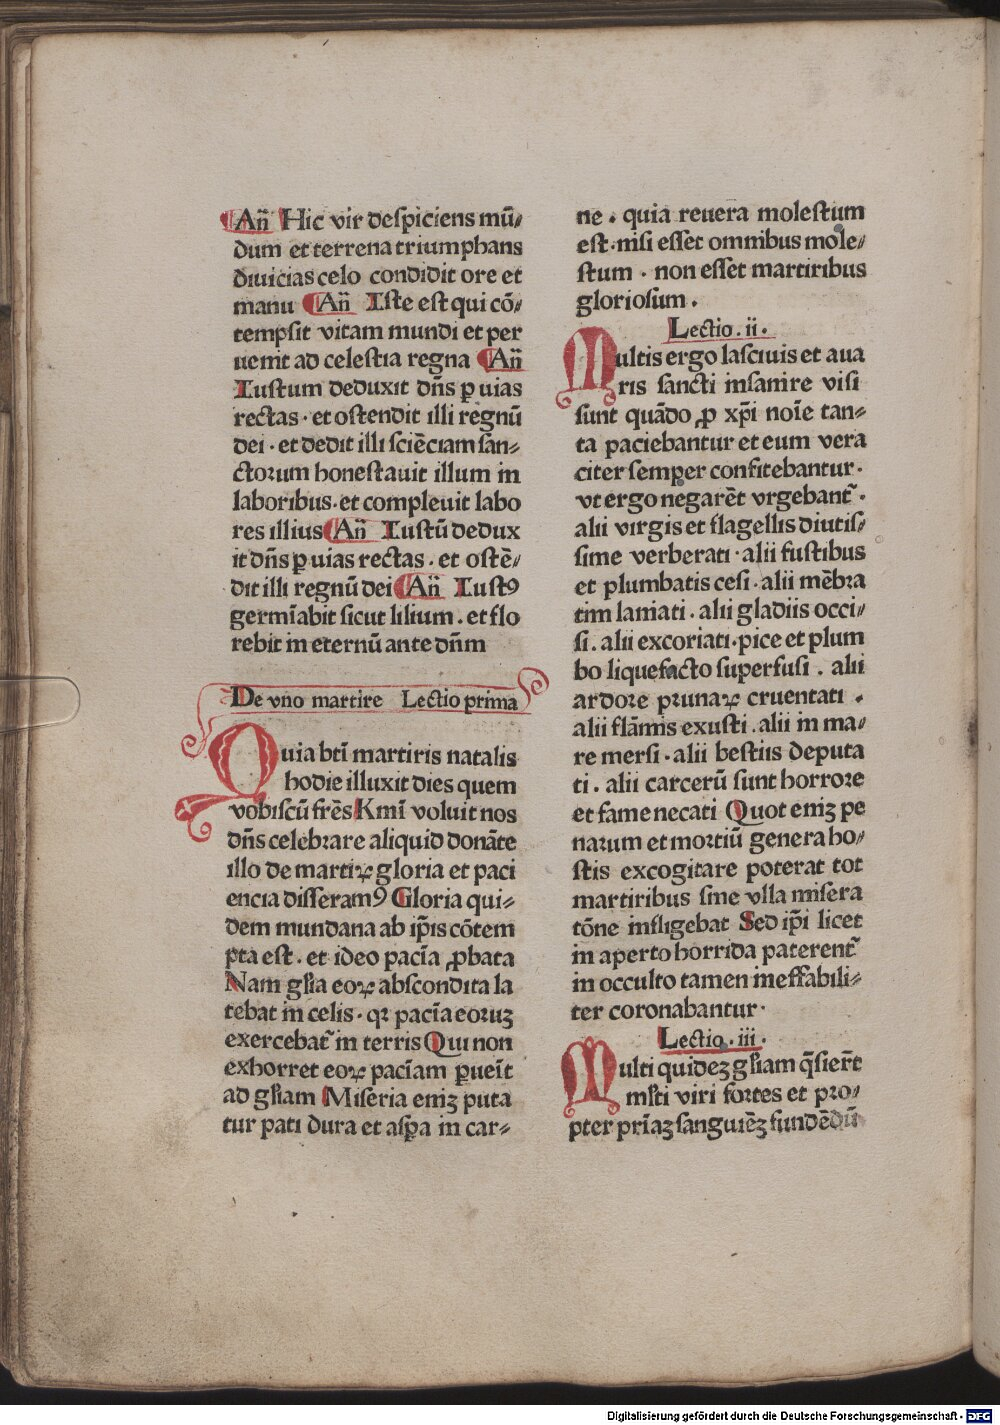 Añ Hic vir despiciens mū⸗
dum et terrena triumphans
diuicias celo condidit ore et
manu Añ Iste est qui cō⸗
tempsit vitam mundi et per
uenit ad celestia regna Añ
Iustum deduxit dn̄s ꝑ uias
rectas · et ostendit illi regnū
dei · et dedit illi sciēciam san⸗
ctorum honestauit illum in
laboribus · et compleuit labo
res illius Añ Iustū dedux
it dn̄s ꝑ uias rectas · et ostē⸗
dit illi regnū dei Añ Iustꝰ
germīabit sicut lilium · et flo
rebit in eternū ante dn̄m
De vno martire Lectio prima
Quia btī martiris natalis
hodie illuxit dies quem
vobiscū frēs Kmī voluit nos
dn̄s celebrare aliquid donāte
illo de martiꝝ gloria et paci
encia disseramꝰ Gloria qui⸗
dem mundana ab ip̄is cōtem
pta est · et ideo pacīa ꝓbata
Nam gl̄ia eoꝝ abscondita la
tebat in celis · qꝛ pacīa eoruꝫ
exercebat᷑ in terris Qui non
exhorret eoꝝ pacīam ꝑueīt
ad gl̄iam Miseria eniꝫ puta
tur pati dura et asꝑa in car⸗
ne · quia reuera molestum
est · nisi esset omnibus mole⸗
stum · non esset martiribus
gloriosum ·
Lectio · ii ·
Multis ergo lasciuis et aua
ris sancti insanire visi
sunt quādo ꝓ xp̄i noīe tan⸗
ta paciebantur et eum vera
citer semper confitebantur ·
vt ergo negarēt vrgebant᷑ ·
alii virgis et flagellis diutis⸗
sime verberati · alii fustibus
et plumbatis cesi · alii mēbra
tim laniati · alii gladiis occi⸗
si · alii excoriati · pice et plum
bo liquefacto superfusi · alii
ardore prunaꝝ cruentati ·
alii flāmis exusti · alii in ma⸗
re mersi · alii bestiis deputa
ti · alii carcerū sunt horrore
et fame necati Quot eniꝫ pe
narum et mortiū genera ho⸗
stis excogitare poterat tot
martiribus sine vlla misera
tōne infligebat Sed ip̄i licet
in aperto horrida paterent᷑
in occulto tamen ineffabili⸗
ter coronabantur ·
Lectio · iii ·
Multi quideꝫ gl̄iam q̄sierūt
mīti viri fortes et pro⸗
pter prīaꝫ sanguīeꝫ fundēdū